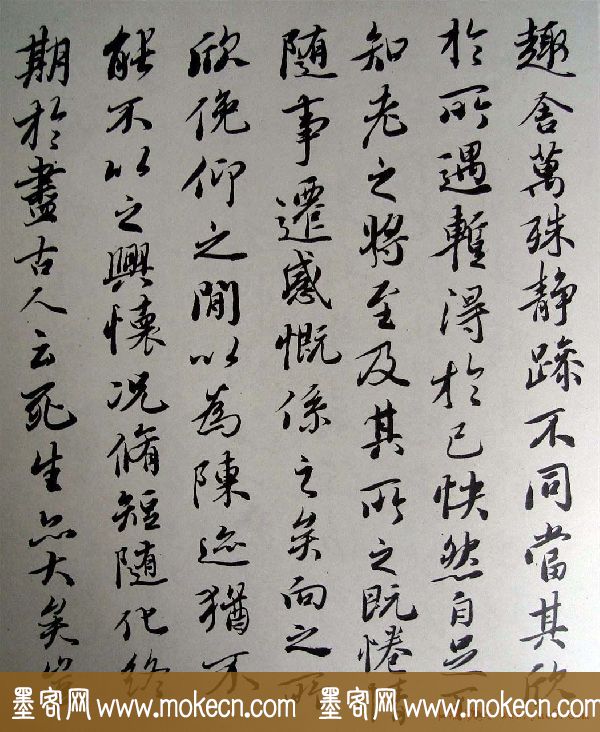 趣舍萬殊静躁不同當其欣
於所遇暫得於己快然自足不
知老之將至及其所之既惓情
随事遷感慨係之矣向之所
欣俛仰之間以為陳迹猶不
能不以之興懷况脩短随化終
期於盡古人云死生亦大矣豈
墨客网 www.mokecn.com 墨客网 www.mokecn.com